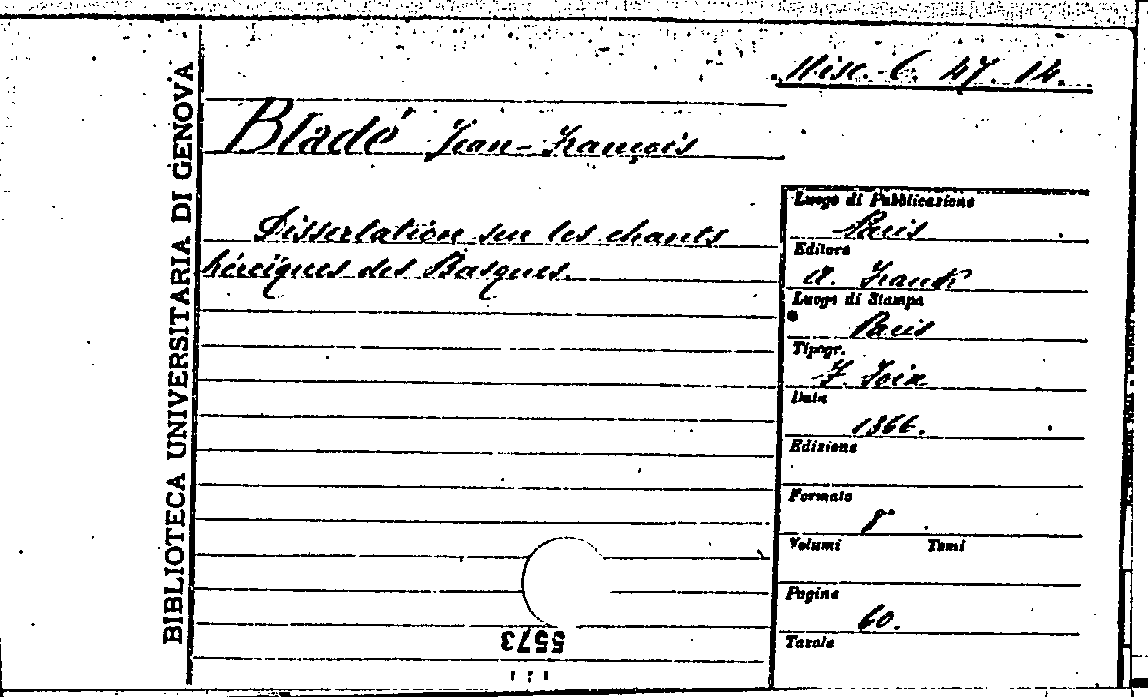 BIBLIOTECA UNIVERSITARIA DI GENOVA
Misc. C. 47. 14.
Bladé Jean-François
Dissertation sur les chants
héroïques des Basques.
Luogo di Pubblicazione
Paris
Editore
A. Frank
Luogo di Stampa
Paris
Tipogr.
Data
1866.
Edizione
Formato
8°
Volumi Tomi
Pagine
60.
Tavole
5573